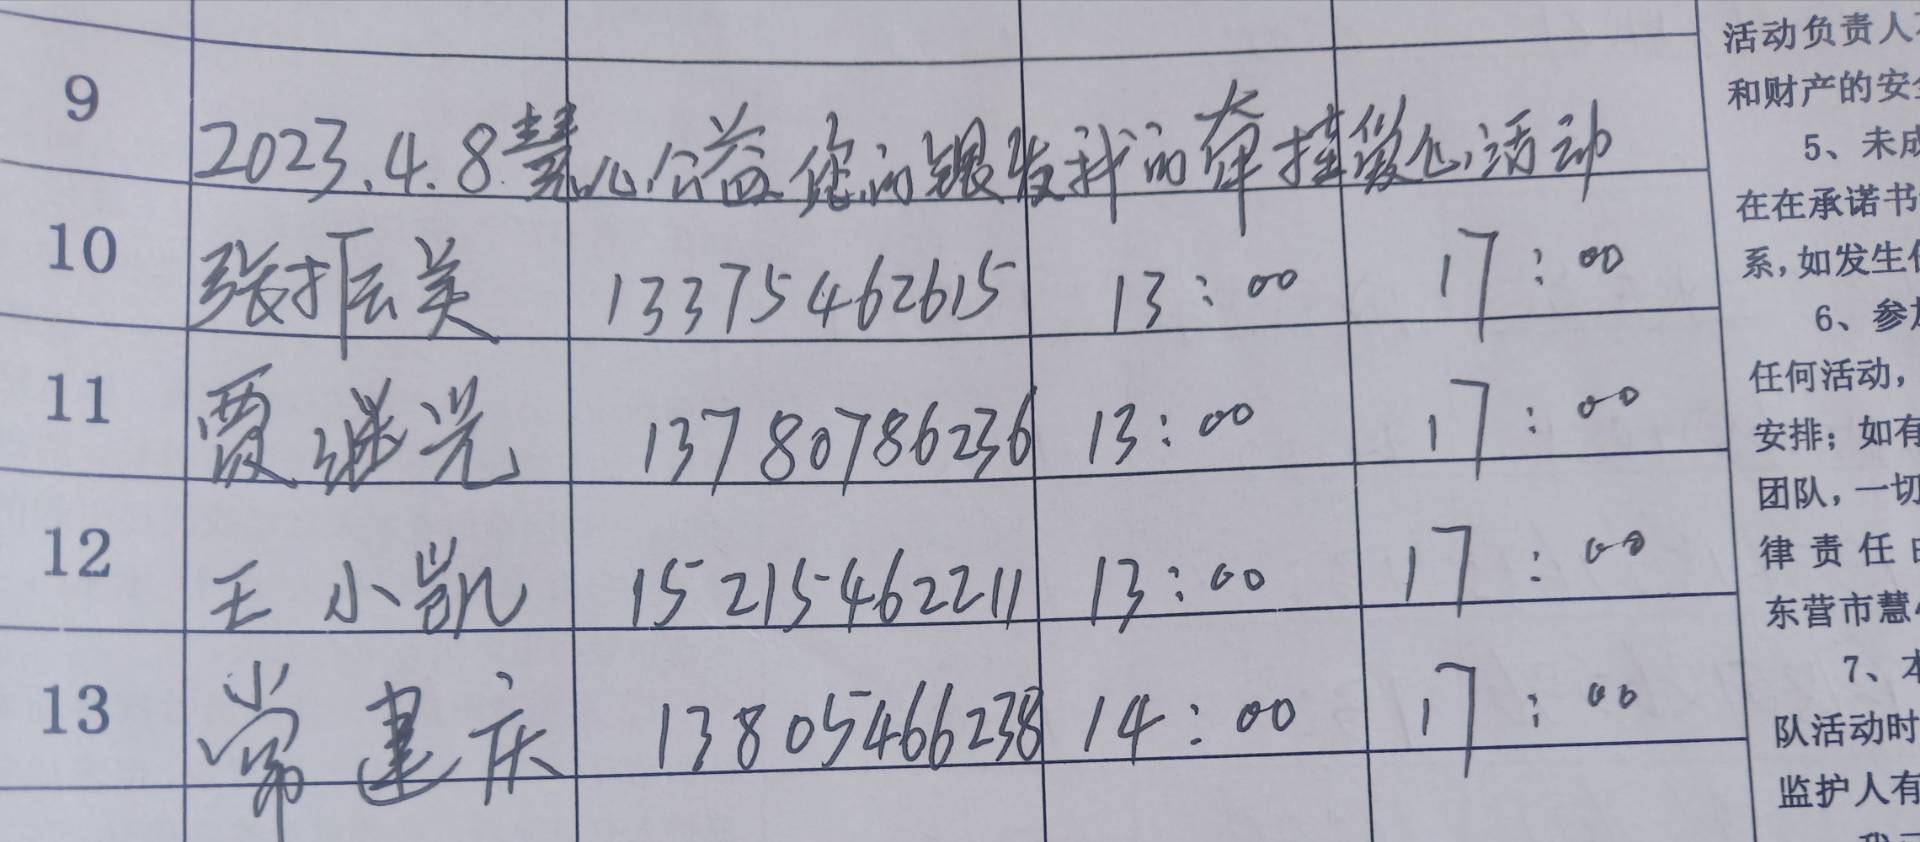 9 2023.4.8慧心公益您的银发我的牵挂爱心活动
10 张振美 13375462615 13:00 17:00
11 贾继光 13780786236 13:00 17:00
12 王小凯 15215462211 13:00 17:00
13 常建庆 13805466238 14:00 17:00
活动负责人
和财产的安全
5、未成
在在承诺书
系,如发生
6、参加
任何活动,
安排;如有
团队,一切
律责任由
东营市慧心
7、本
队活动时
监护人有